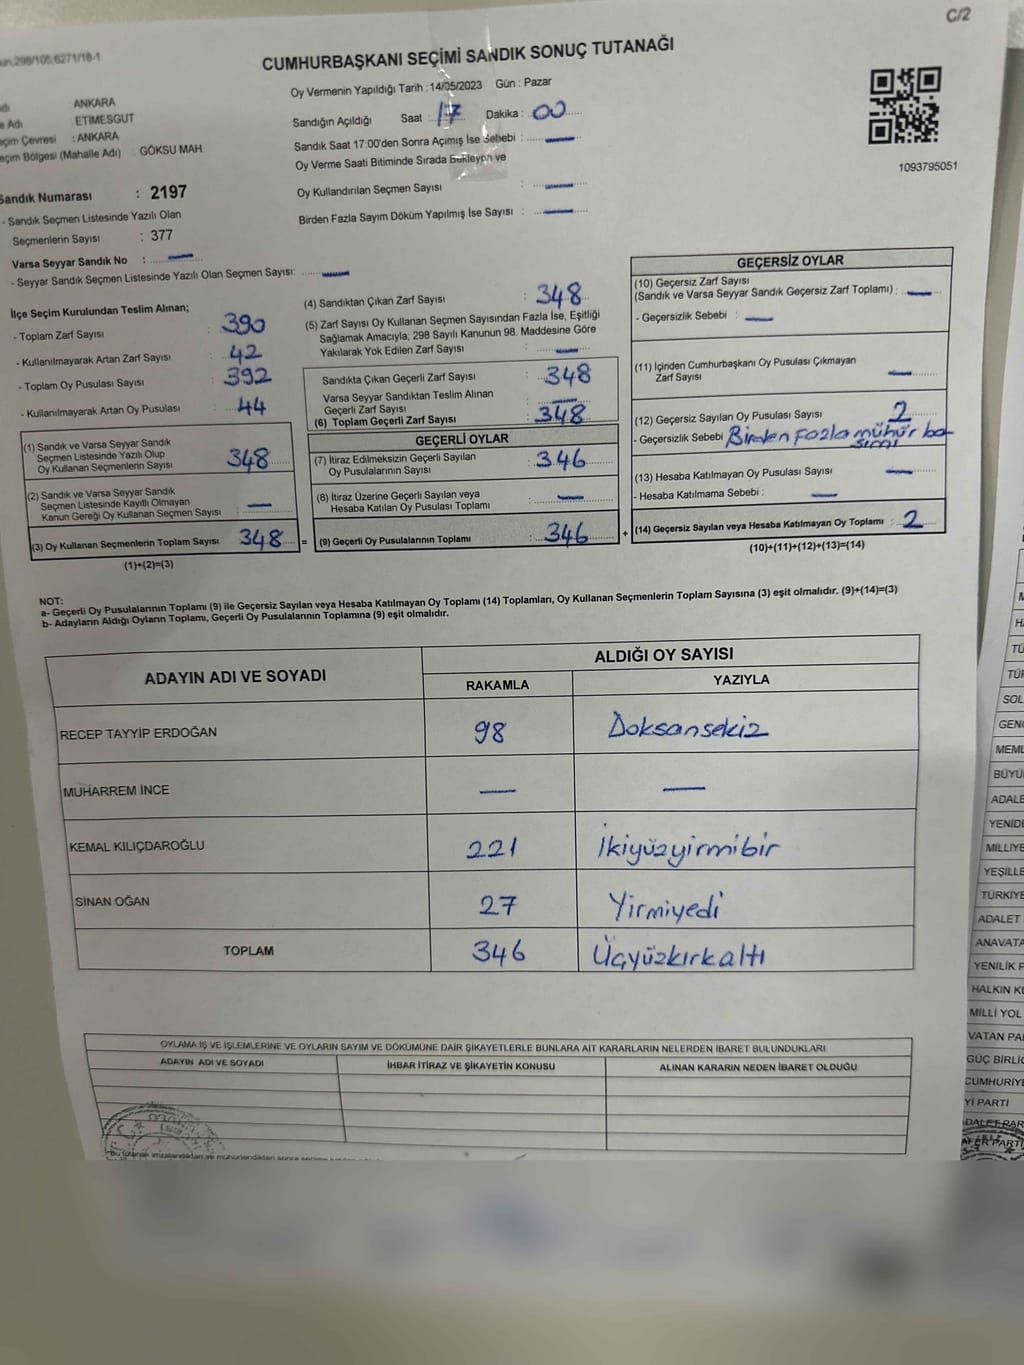 C/2
298/105;6271/18-1
CUMHURBAŞKANI SEÇİMİ SANDIK SONUÇ TUTANAĞI
ANKARA
Adı ETİMESGUT
Seçim Çevresi : ANKARA
Seçim Bölgesi (Mahalle Adı) : GÖKSU MAH.
Oy Vermenin Yapıldığı Tarih : 14/05/2023 Gün : Pazar
Sandığın Açıldığı Saat : 17 Dakika : 00
Sandık Saat 17:00'den Sonra Açımış İse Sebebi : —
Oy Verme Saati Bitiminde Sırada Bekleyen ve
Oy Kullandırılan Seçmen Sayısı : —
Birden Fazla Sayım Döküm Yapılmış İse Sayısı : —
1093795051
Sandık Numarası : 2197
- Sandık Seçmen Listesinde Yazılı Olan
Seçmenlerin Sayısı : 377
Varsa Seyyar Sandık No : —
- Seyyar Sandık Seçmen Listesinde Yazılı Olan Seçmen Sayısı: —
İlçe Seçim Kurulundan Teslim Alınan;
- Toplam Zarf Sayısı : 390
- Kullanılmayarak Artan Zarf Sayısı : 42
- Toplam Oy Pusulası Sayısı : 392
- Kullanılmayarak Artan Oy Pusulası : 44
(1) Sandık ve Varsa Seyyar Sandık
Seçmen Listesinde Yazılı Olup
Oy Kullanan Seçmenlerin Sayısı : 348
(2) Sandık ve Varsa Seyyar Sandık
Seçmen Listesinde Kayıtlı Olmayan
Kanun Gereği Oy Kullanan Seçmen Sayısı : —
(3) Oy Kullanan Seçmenlerin Toplam Sayısı 348 =
(1)+(2)=(3)
(4) Sandıktan Çıkan Zarf Sayısı : 348
(5) Zarf Sayısı Oy Kullanan Seçmen Sayısından Fazla İse, Eşitliği
Sağlamak Amacıyla, 298 Sayılı Kanunun 98. Maddesine Göre
Yakılarak Yok Edilen Zarf Sayısı : —
Sandıkta Çıkan Geçerli Zarf Sayısı : 348
Varsa Seyyar Sandıktan Teslim Alınan
Geçerli Zarf Sayısı : —
(6) Toplam Geçerli Zarf Sayısı : 348
GEÇERLİ OYLAR
(7) İtiraz Edilmeksizin Geçerli Sayılan
Oy Pusulalarının Sayısı : 346
(8) İtiraz Üzerine Geçerli Sayılan veya
Hesaba Katılan Oy Pusulası Toplamı : —
(9) Geçerli Oy Pusulalarının Toplamı : 346 +
GEÇERSİZ OYLAR
(10) Geçersiz Zarf Sayısı
(Sandık ve Varsa Seyyar Sandık Geçersiz Zarf Toplamı) : —
- Geçersizlik Sebebi : —
(11) İçinden Cumhurbaşkanı Oy Pusulası Çıkmayan
Zarf Sayısı : —
(12) Geçersiz Sayılan Oy Pusulası Sayısı : 2
- Geçersizlik Sebebi Birden fazla mühür ba-
sımı
(13) Hesaba Katılmayan Oy Pusulası Sayısı : —
- Hesaba Katılmama Sebebi : —
(14) Geçersiz Sayılan veya Hesaba Katılmayan Oy Toplamı : 2
(10)+(11)+(12)+(13)=(14)
NOT:
a- Geçerli Oy Pusulalarının Toplamı (9) ile Geçersiz Sayılan veya Hesaba Katılmayan Oy Toplamı (14) Toplamları, Oy Kullanan Seçmenlerin Toplam Sayısına (3) eşit olmalıdır. (9)+(14)=(3)
b- Adayların Aldığı Oyların Toplamı, Geçerli Oy Pusulalarının Toplamına (9) eşit olmalıdır.
ADAYIN ADI VE SOYADI
ALDIĞI OY SAYISI
RAKAMLA YAZIYLA
RECEP TAYYİP ERDOĞAN 98 Doksansekiz
MUHARREM İNCE — —
KEMAL KILIÇDAROĞLU 221 İkiyüzyirmibir
SİNAN OĞAN 27 Yirmiyedi
TOPLAM 346 Üçyüzkırkaltı
OYLAMA İŞ VE İŞLEMLERİNE VE OYLARIN SAYIM VE DÖKÜMÜNE DAİR ŞİKAYETLERLE BUNLARA AİT KARARLARIN NELERDEN İBARET BULUNDUKLARI
ADAYIN ADI VE SOYADI İHBAR İTİRAZ VE ŞİKAYETİN KONUSU ALINAN KARARIN NEDEN İBARET OLDUĞU
TÜ
TÜR
SOL
GENÇ
MEML
BÜYÜ
ADALE
YENİDE
MİLLİYE
YEŞİLLE
TÜRKİYE
ADALET
ANAVATA
YENİLİK P
HALKIN KU
MİLLİ YOL
VATAN PA
GÜÇ BİRLİĞ
CUMHURİYE
Yİ PARTİ